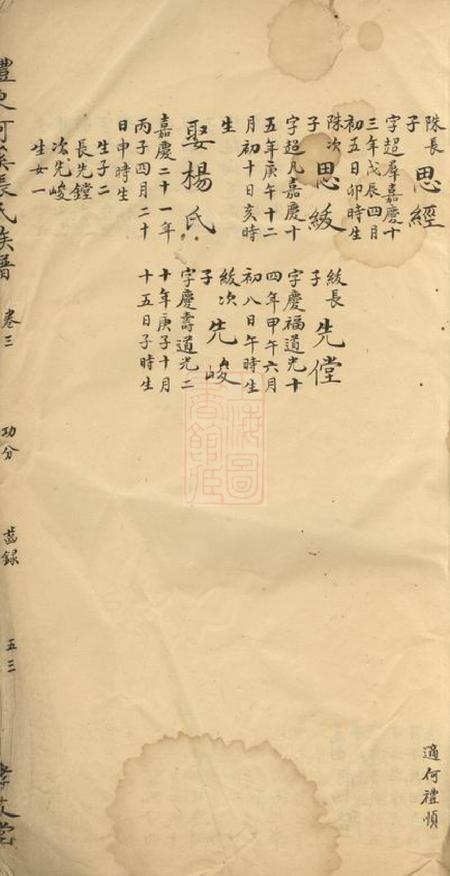 適何禮順
長子思經
字超羣嘉慶十
三年戊辰四月
初五日卯時生
次子思紱
字超凡嘉慶十
五年庚午十二
月初十日亥時
生
娶楊氏
嘉慶二十一年
丙子四月二十
日申時生
生子二
長先鏜
次先峻
生女一
紱長子先
字慶福道光十
四年甲午六月
初八日午時生
紱次子先峻
字慶壽道光二
十年庚子十月
十五日子時生
張氏族譜 卷三 功分 齒録 五三 友堂